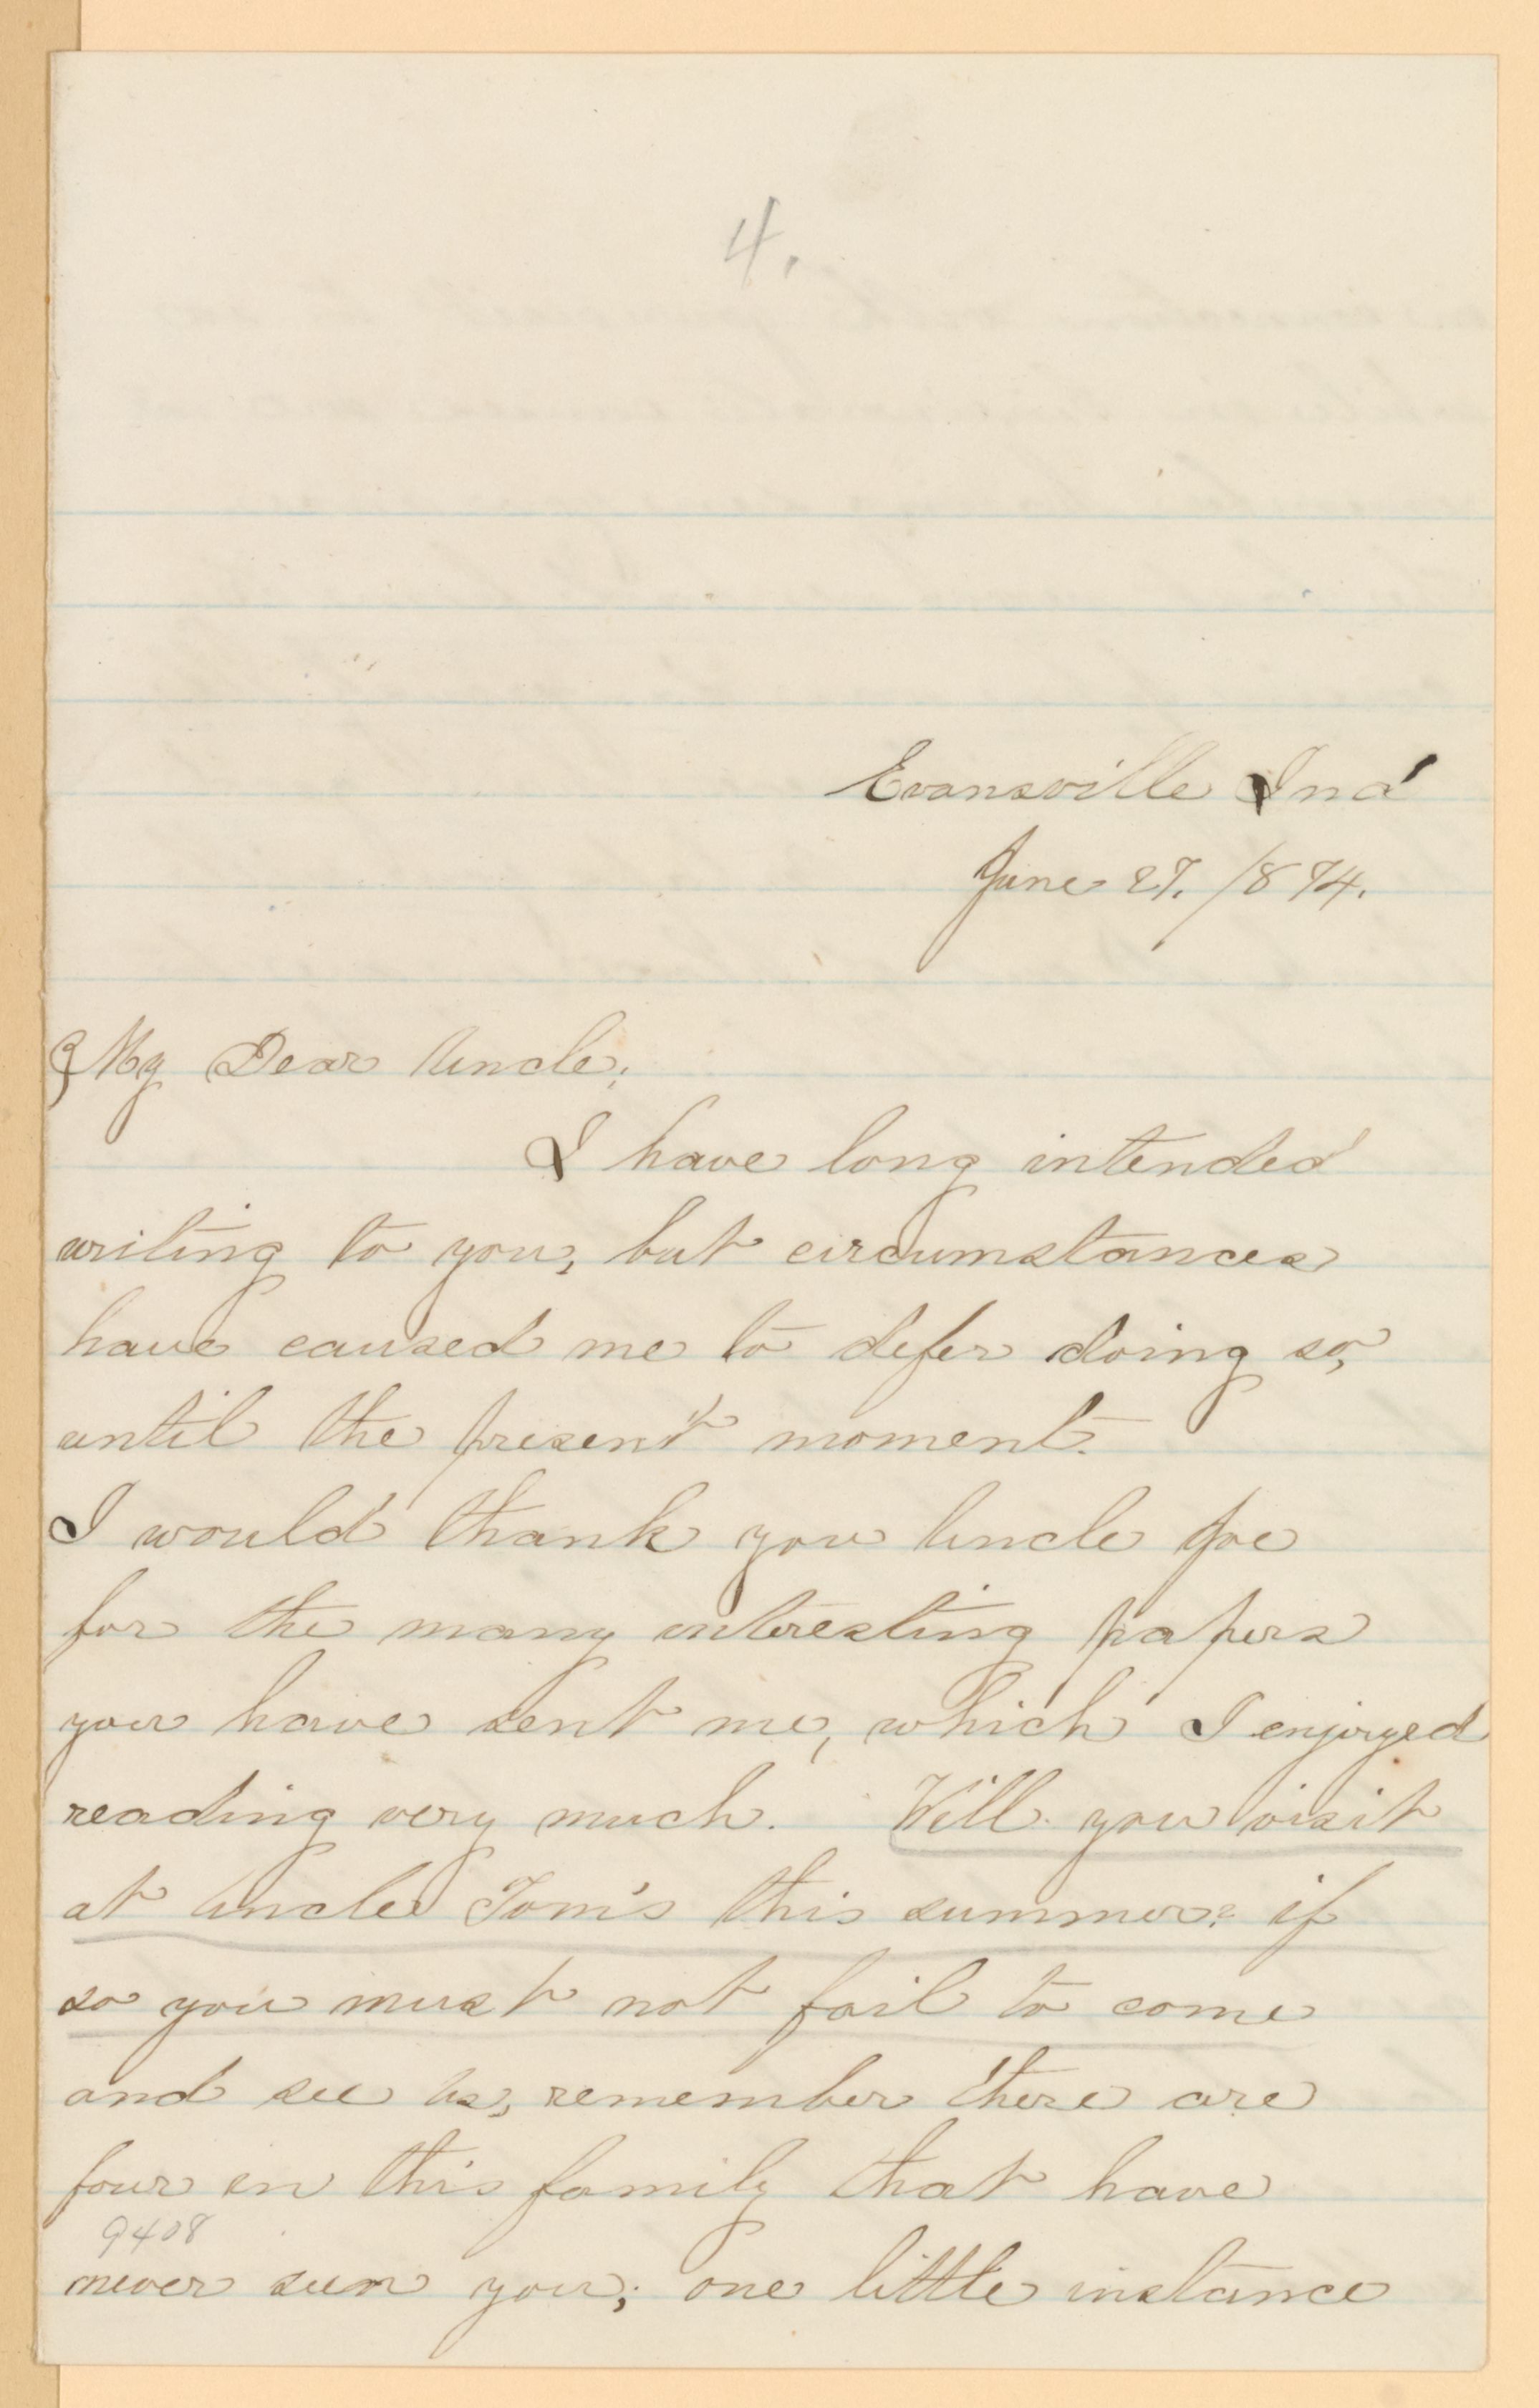 4.
Evansville Ind
June 27. 1874.
My Dear Uncle;
I have long intended
writing to you, but circumstances
have caused me to defer doing so,
until the present moment.
I would thank you Uncle Joe
for the many interesting papers
you have sent me, which I enjoyed
reading very much. Will you visit
at Uncle Tom's this summer? if
so you must not fail to come
and see us, remember there are
four in this family that have
9408
never seen you; one little instance